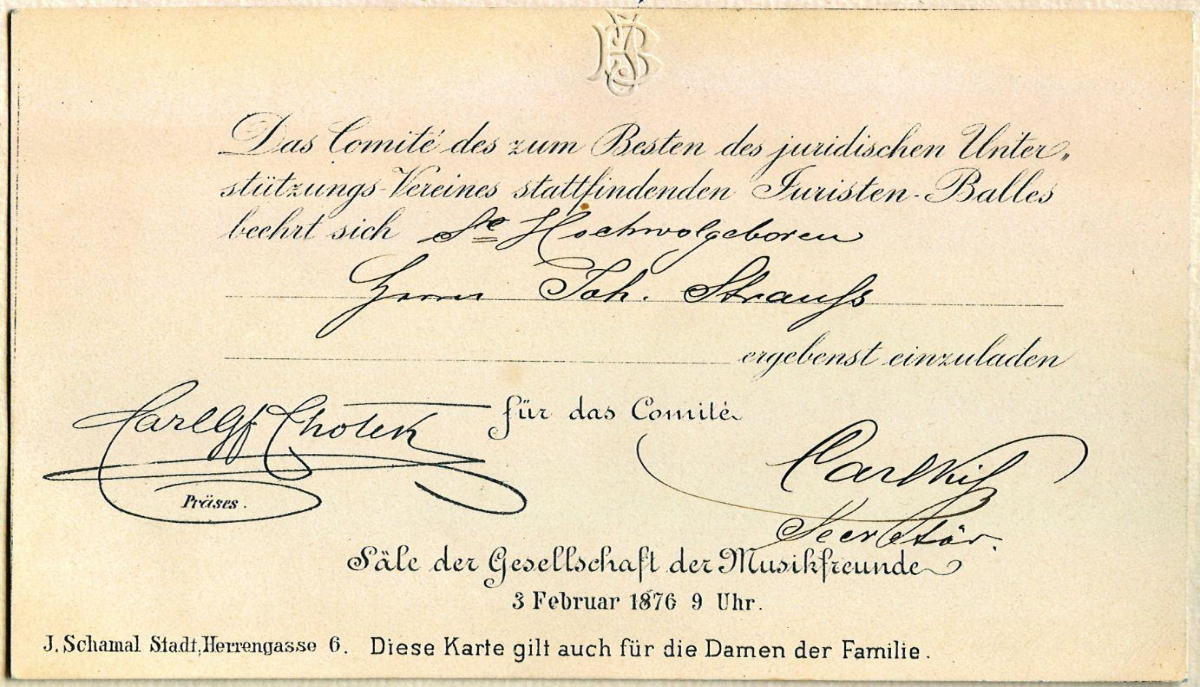 JB
Das Comité des zum Besten des juridischen Unter„
stützungs-Vereines stattfindenden Juristen-Balles
beehrt sich Se Hochwolgeboren
Herrn Joh. Strauß
ergebenst einzuladen
für das Comité
Carl Gf Chotek
Präses.
Carl
Secretär.
Säle der Gesellschaft der Musikfreunde
3 Februar 1876 9 Uhr.
J. Schamal Stadt, Herrengasse 6. Diese Karte gilt auch für die Damen der Familie.